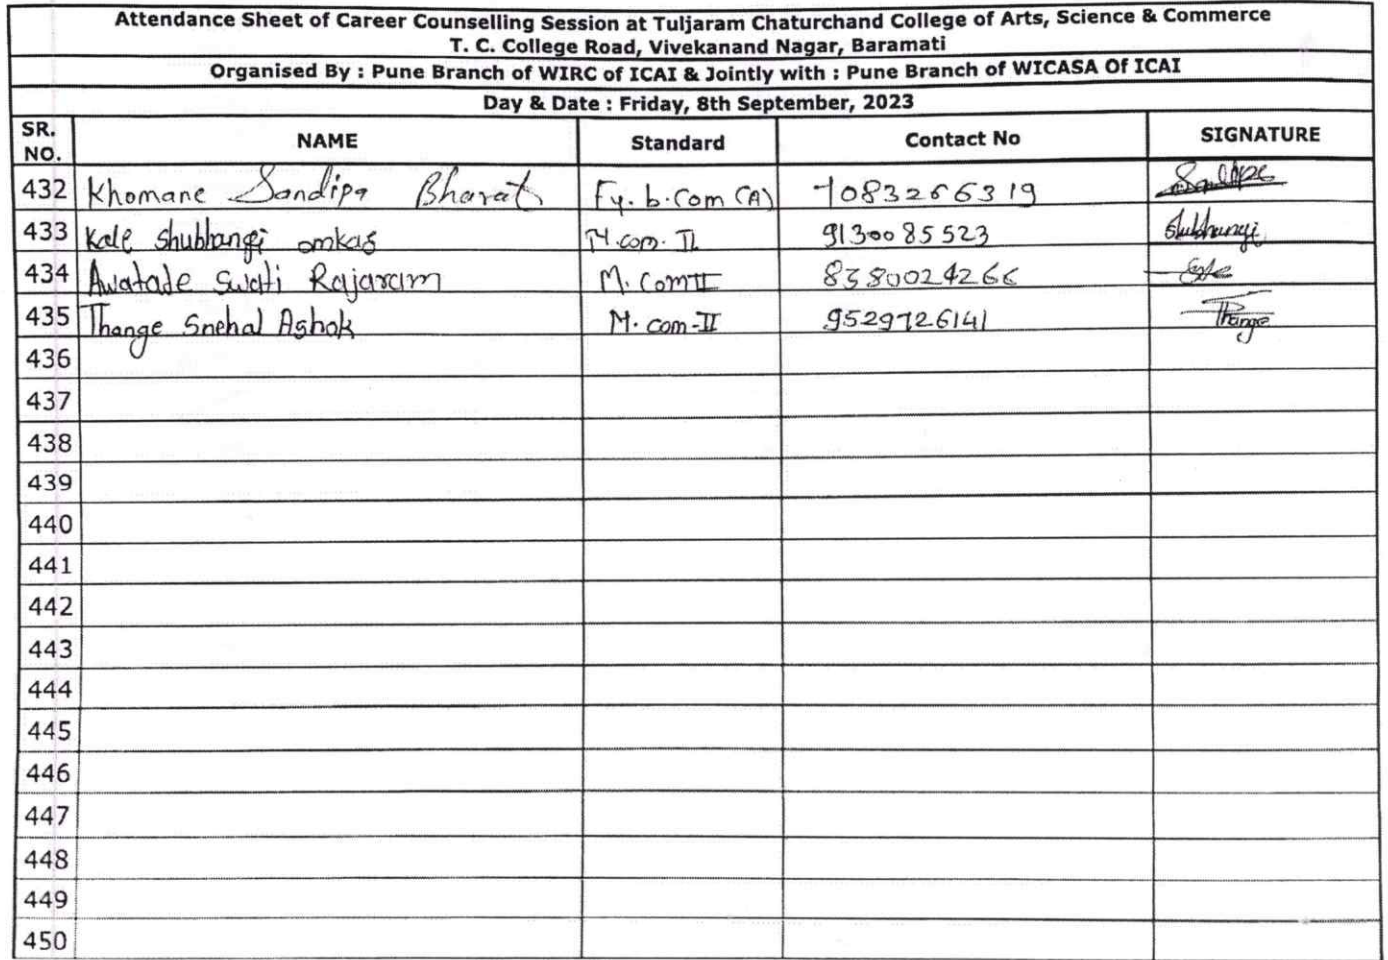 Attendance Sheet of Career Counselling Session at Tuljaram Chaturchand College of Arts, Science & Commerce
T. C. College Road, Vivekanand Nagar, Baramati
Organised By : Pune Branch of WIRC of ICAI & Jointly with : Pune Branch of WICASA Of ICAI
Day & Date : Friday, 8th September, 2023
SR. NO. NAME Standard Contact No SIGNATURE
432 Khomane Sandipa Bharat Fy. b. Com (A)
433 Kale Shubhangi omkar M. com. II 9130085523 Shubhangi
434 Awatade Swati Rajaram M. Com II 8380024266
435 Thange Snehal Ashok M. com-II 9529726141 Thange
436
437
438
439
440
441
442
443
444
445
446
447
448
449
450